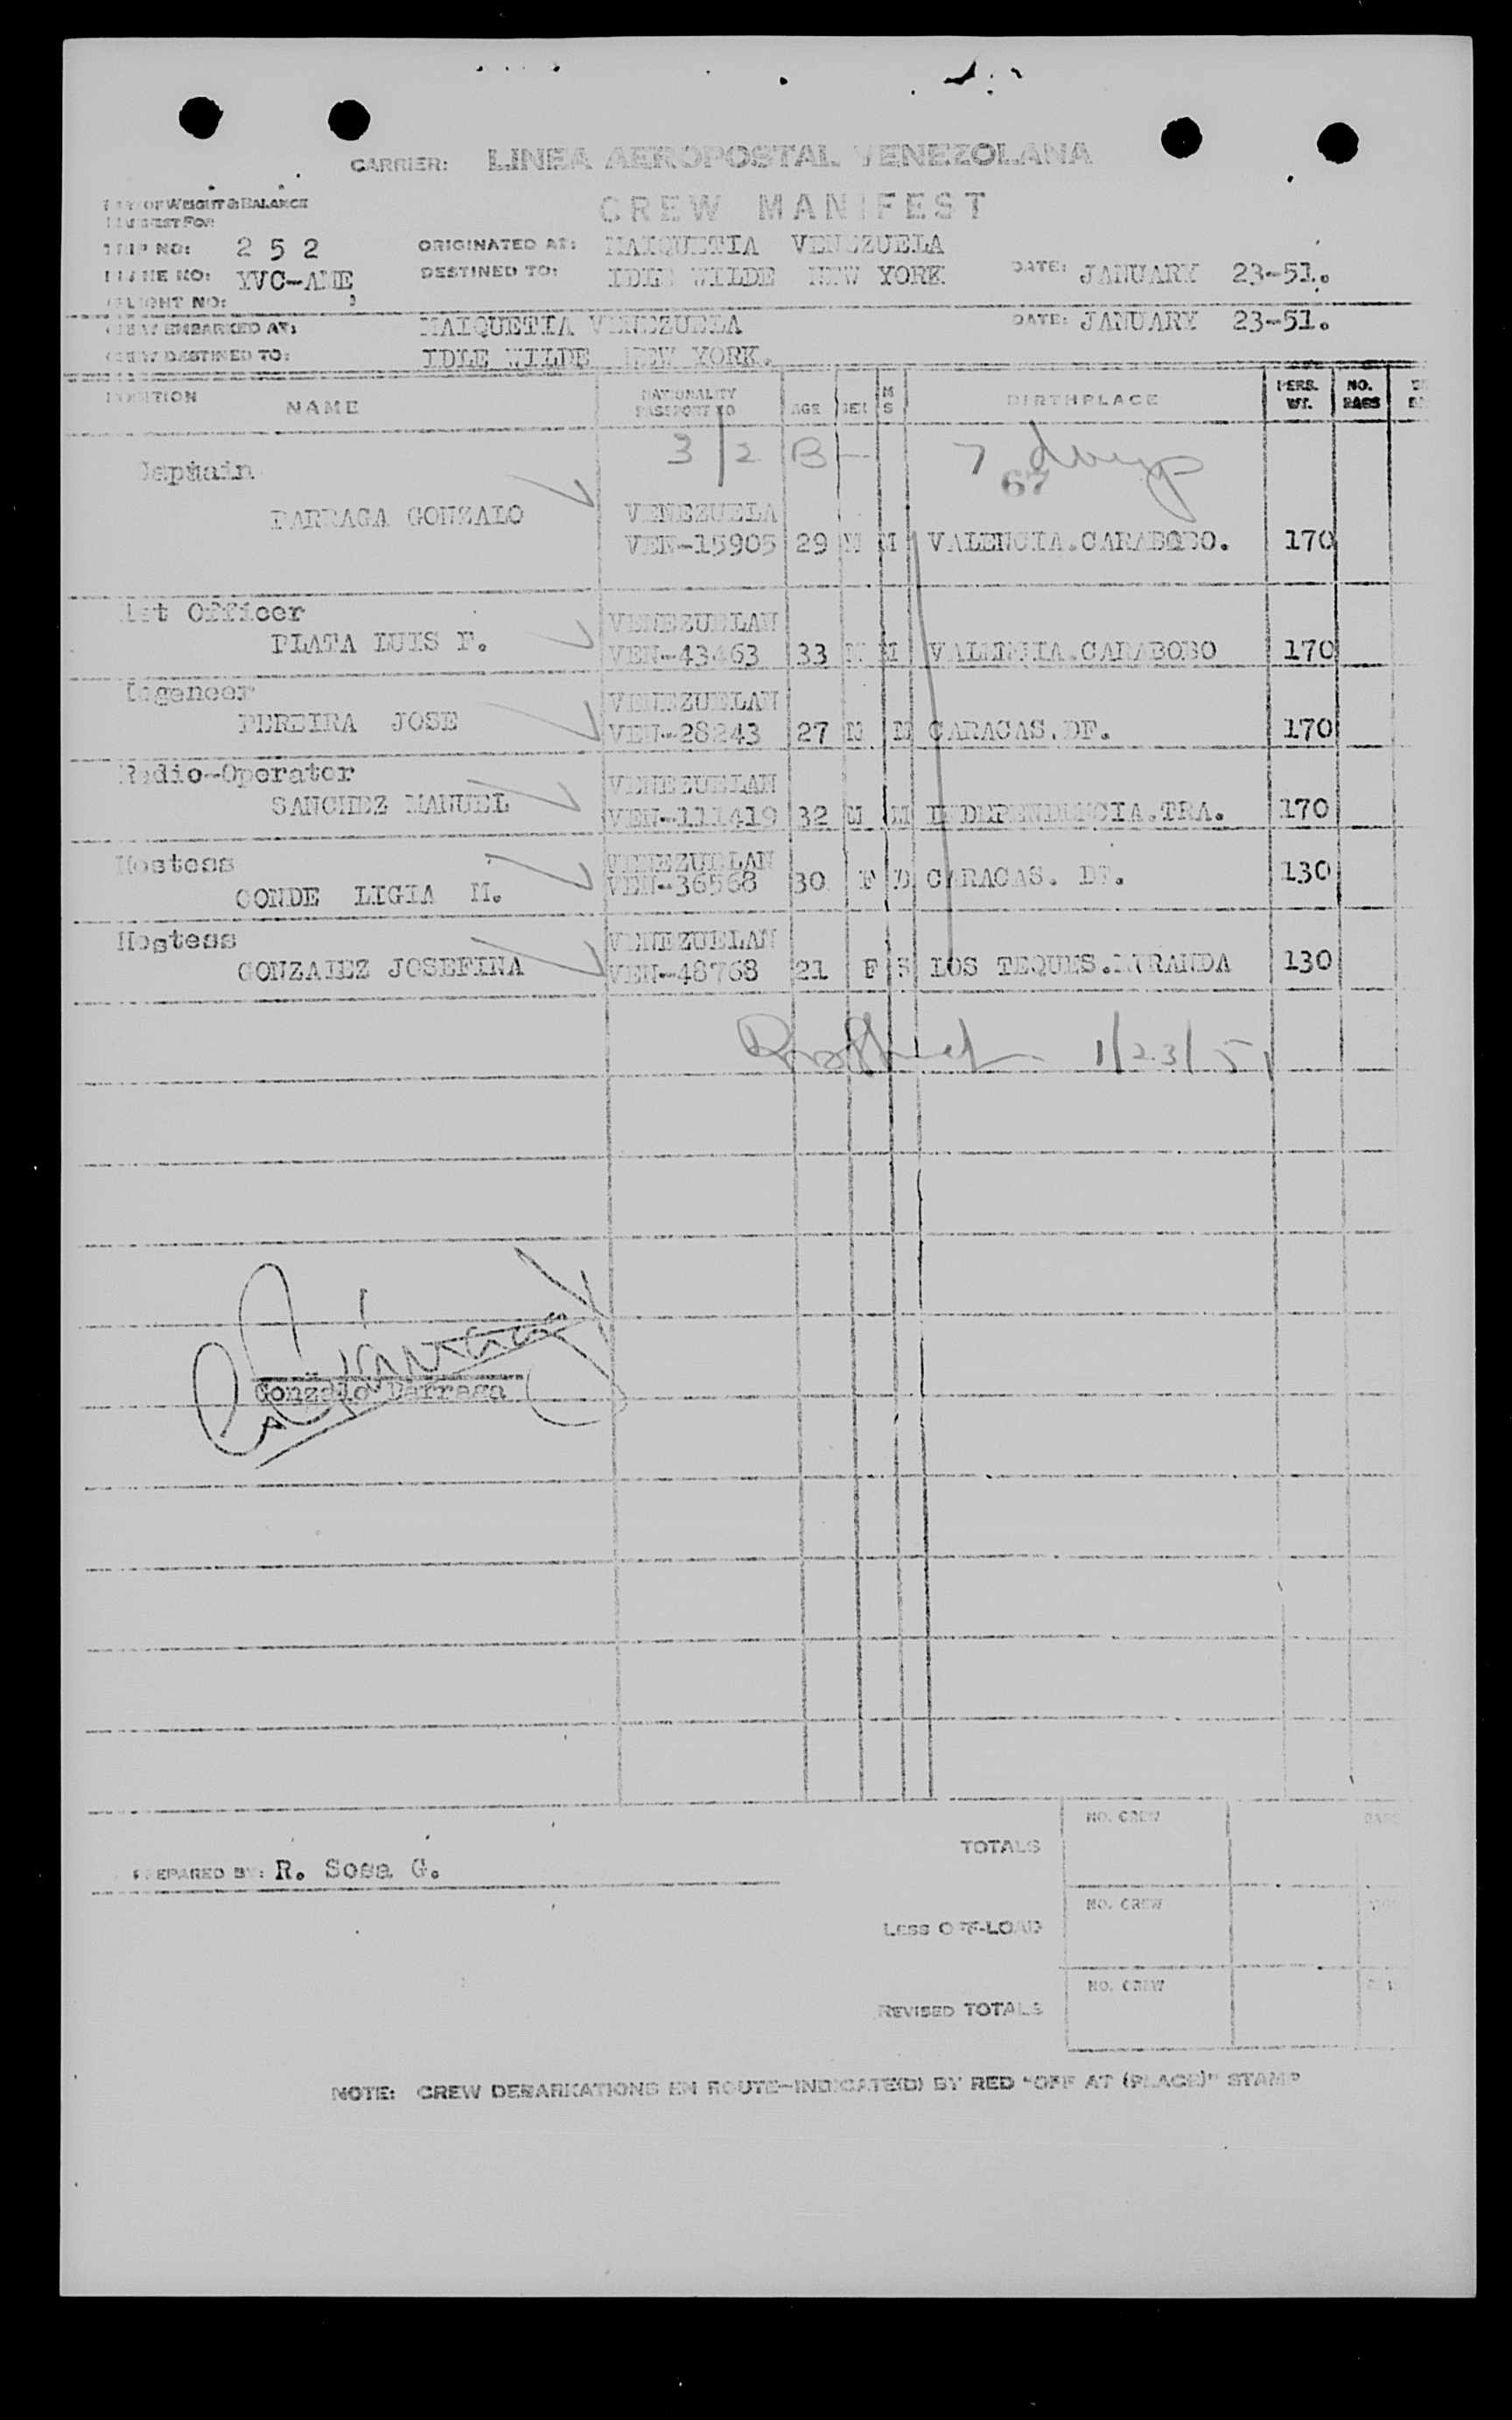 CARRIER: LINEA AEROPOSTAL VENEZOLANA
OF WEIGHT & BALANCE
CREW MANIFEST
TRIP NO: 2 5 2 ORIGINATED AT: MAIQUETIA VENEZUELA
PLANE NO: YVC-AME DESTINED TO: IDLE WILDE NEW YORK DATE: JANUARY 23-51.
FLIGHT NO:
CREW EMBARKED AT: MAIQUETIA VENEZUELA DATE: JANUARY 23-51.
CREW DESTINED TO: IDLE WILDE NEW YORK.
POSITION NAME NATIONALITY PASSPORT NO AGE SEX M S BIRTHPLACE PERS. WT. NO. BAGS
3/2 B- 7 days
67
Captain
PARRAGA GONZALO VENEZUELA
VEN-15905 29 M M VALENCIA.CARABOBO. 170
1st Officer VENEZUELAN
PLATA LUIS F. VEN-43463 33 M M VALENCIA.CARABOBO 170
Engeneer VENEZUELAN
PEREIRA JOSE VEN-28243 27 M M CARACAS.DF. 170
Radio-Operator VENEZUELAN
SANCHEZ MANUEL VEN-111419 32 M M INDEPENDENCIA.TRA. 170
Hostess VENEZUELAN
CONDE LIGIA M. VEN-36568 30 F D CARACAS. DF. 130
Hostess VENEZUELAN
GONZALEZ JOSEFINA VEN-48768 21 F S LOS TEQUES.MIRANDA 130
1/23/51
Gonzalo Parraga
NO. CREW
TOTALS
PREPARED BY: R. Sosa G.
NO. CREW
LESS OFF-LOAD
NO. CREW
REVISED TOTALS
NOTE: CREW DEBARKATIONS EN ROUTE-INDICATE(D) BY RED "OFF AT (PLACE)" STAMP